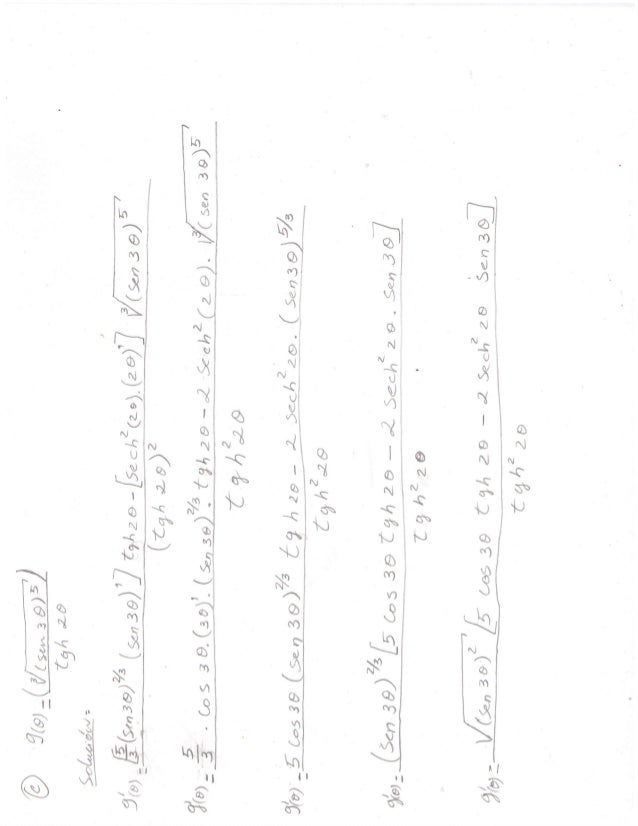 (c) g(θ) = (∛(sen 3θ)^5) / tgh 2θ
Solución:
g'(θ) = [5/3 (sen 3θ)^2/3 (sen 3θ)'] tgh 2θ - [sech^2 (2θ).(2θ)'] ∛(sen 3θ)^5 / (tgh 2θ)^2
g'(θ) = 5/3 . Cos 3θ.(3θ)'.(sen 3θ)^2/3. tgh 2θ - 2 Sech^2 (2θ). ∛(sen 3θ)^5 / tgh^2 2θ
g'(θ) = 5 cos 3θ (sen 3θ)^2/3 tgh 2θ - 2 sech^2 2θ. (sen 3θ)^5/3 / tgh^2 2θ
g'(θ) = (sen 3θ)^2/3 [5 Cos 3θ tgh 2θ - 2 Sech^2 2θ. Sen 3θ] / tgh^2 2θ
g'(θ) = √(sen 3θ)^2 [5 Cos 3θ tgh 2θ - 2 Sech^2 2θ Sen 3θ] / tgh^2 2θ